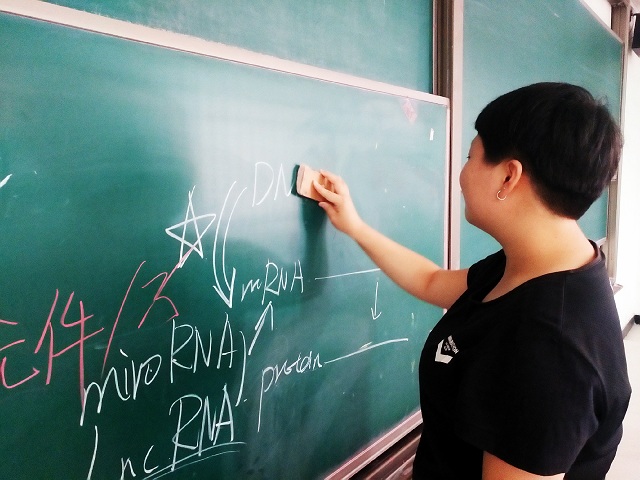 DN
mRNA
元件/
miroRNA
protein
lncRNA